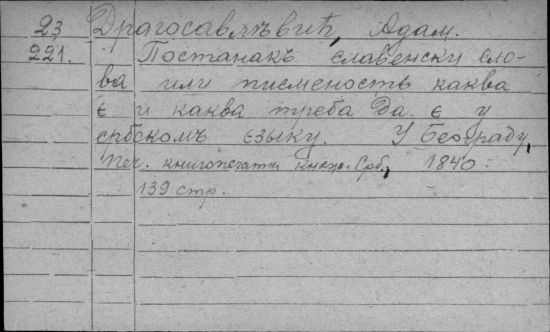 23 Драгосавлѣвић, Адам.
221. Постанакъ славенски сло-
ва или писменость каква
є и каква треба да є у
србскомъ єзыку. У Београду,
Печ. книгопечатн. княж. Срб., 1840.
139 стр.